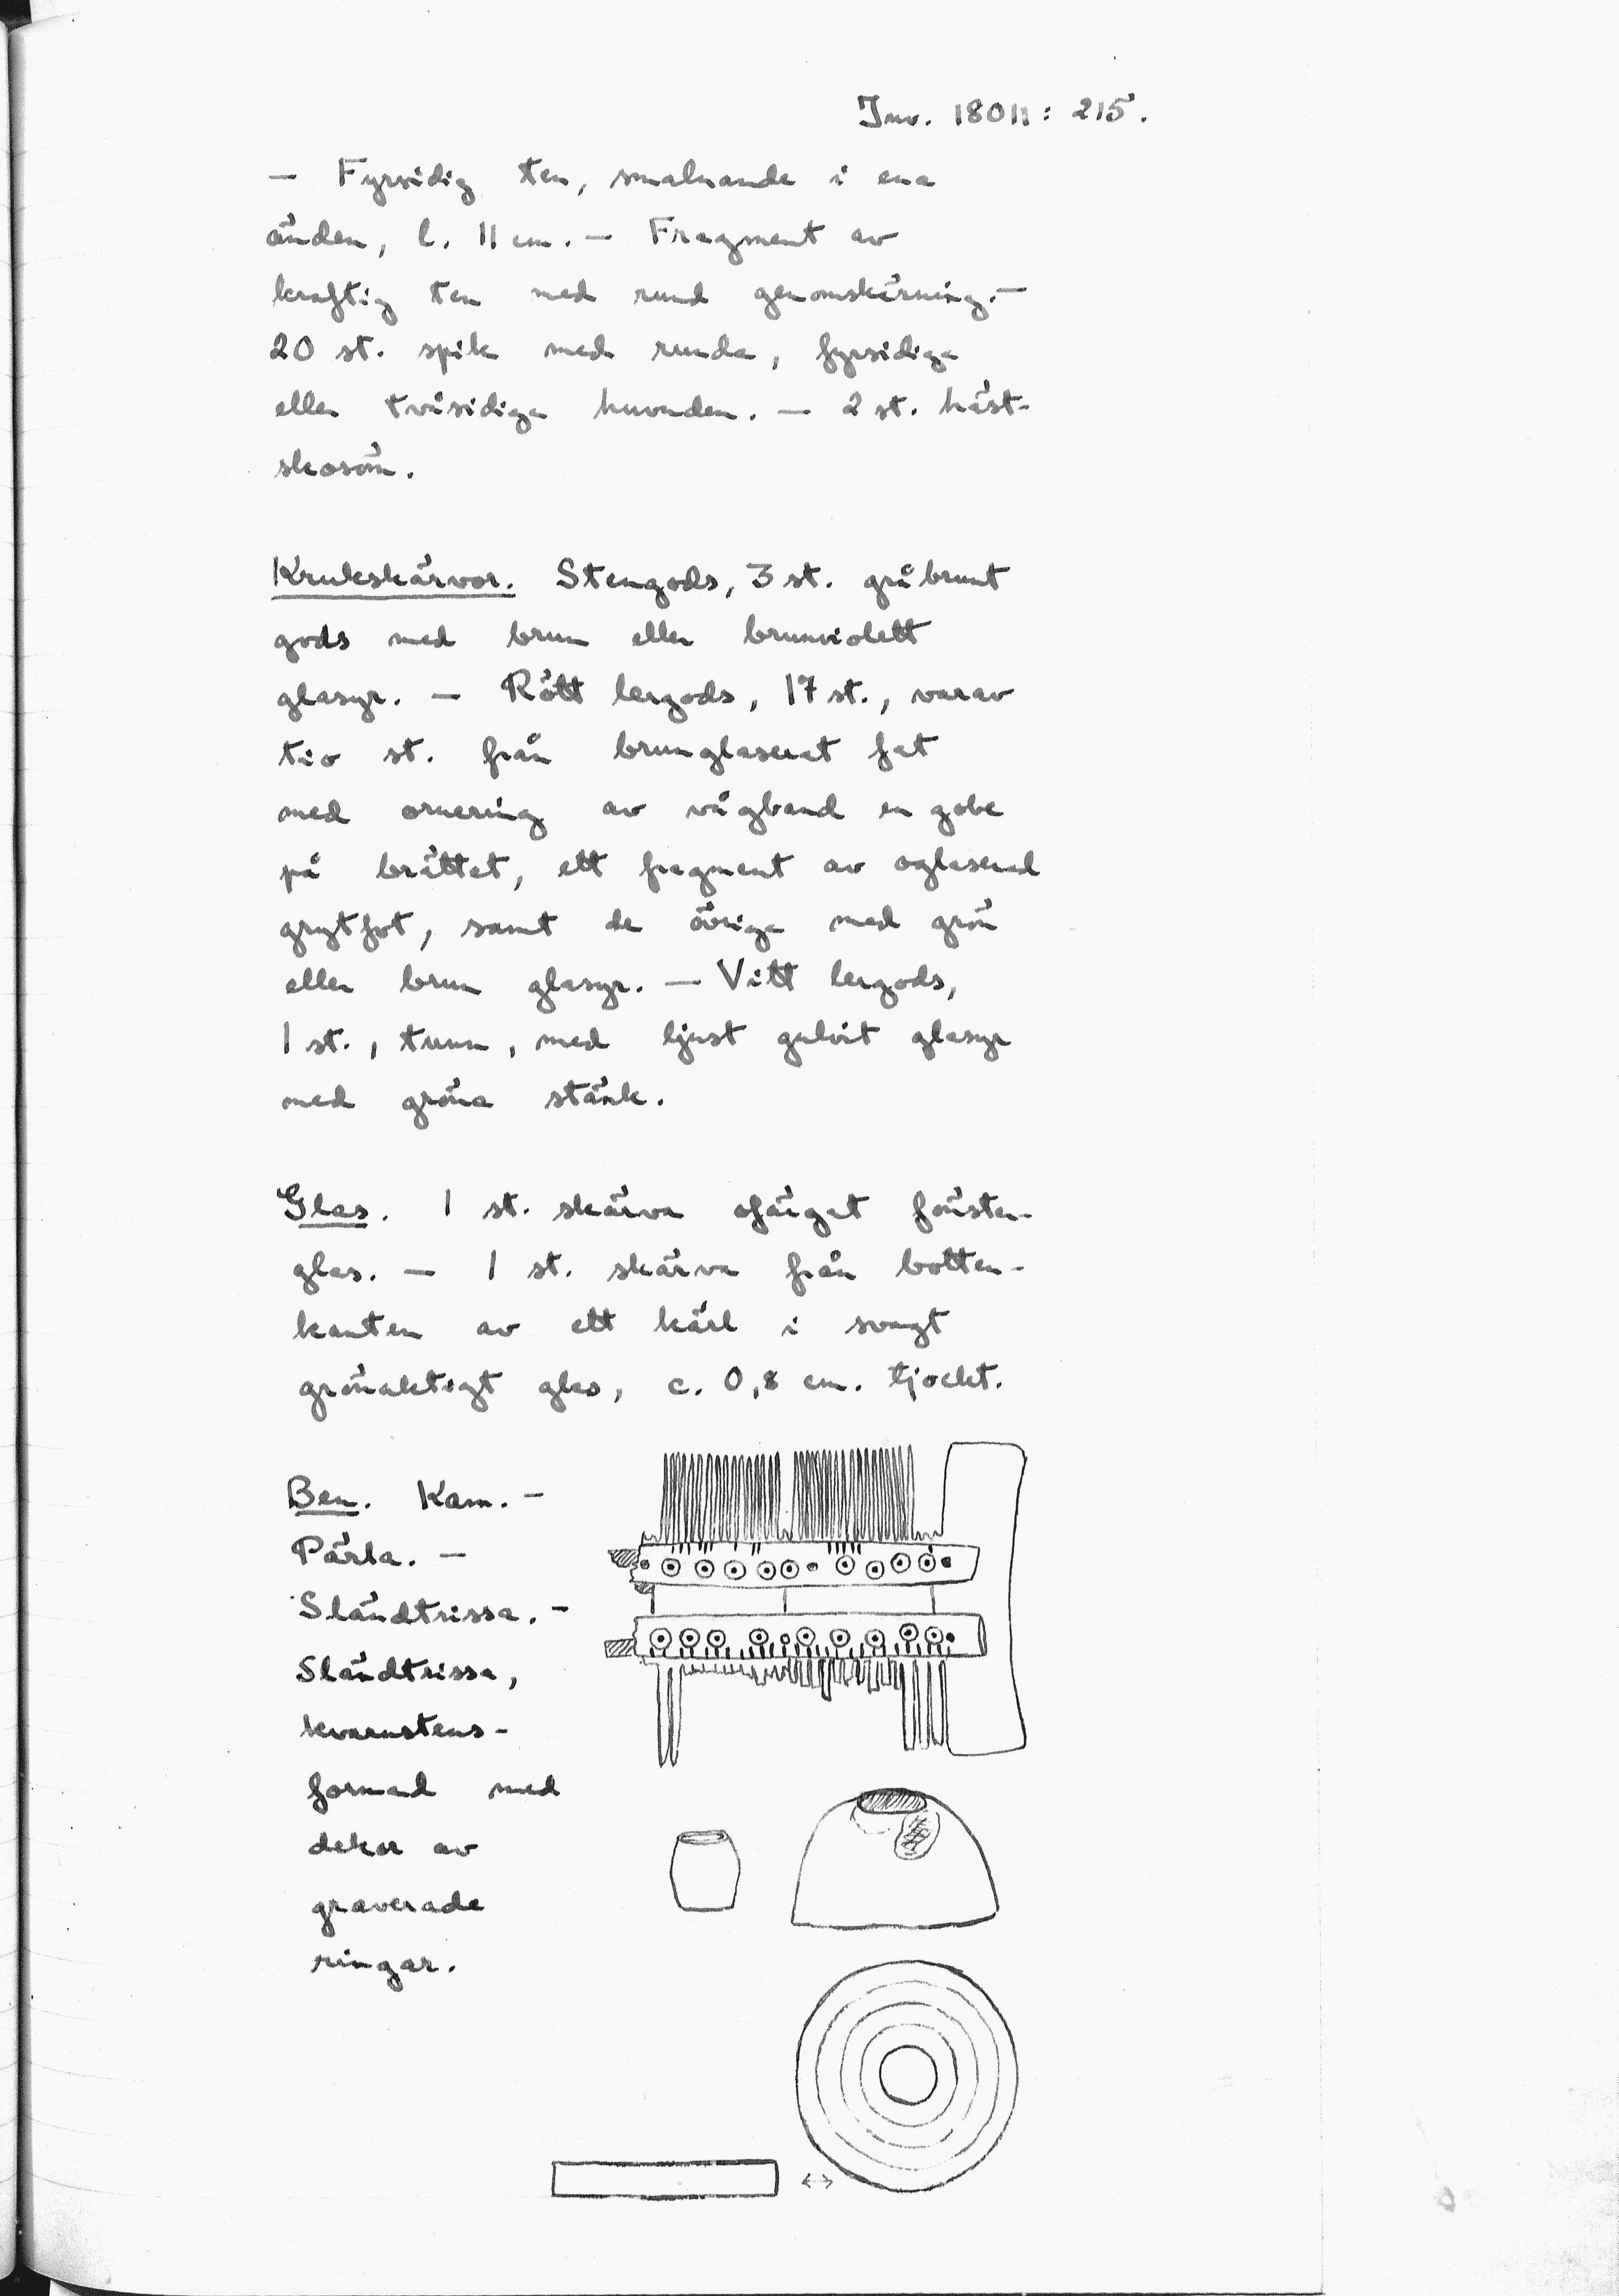 Inv. 18011: 215.
— Fyrsidig ten, smalnande i ena
änden, l. 11 cm. — Fragment av
kraftig ten med rund genomskärning. —
20 st. spik med runda, fyrsidiga
eller tvåsidiga huvuden. — 2 st. häst-
skosöm.
Krukskärvor. Stengods, 3 st. gråbrunt
gods med brun eller brunviolett
glasyr. — Rött lergods, 17 st., varav
tio st. från brunglaserat fat
med ornering av vågband en gobe
på brättet, ett fragment av oglaserad
grytfot, samt de övriga med grön
eller brun glasyr. — Vitt lergods,
1 st., tunn, med ljust gulvit glasyr
med gröna stänk.
Glas. 1 st. skärva ofärgat fönster-
glas. — 1 st. skärva från botten-
kanten av ett kärl i svagt
grönaktigt glas, c. 0,8 cm. tjockt.
Ben. Kam. —
Pärla. —
Sländtrissa. —
Sländtrissa,
kvarnstens-
formad med
dekor av
graverade
ringar.